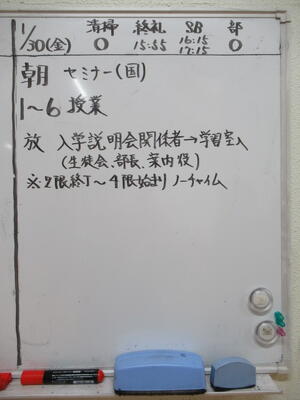 清掃 終礼 SB 部
1/30(金) ○ 15:55 16:15 ○
17:15
朝 セミナー(国)
1~6 授業
放 入学説明会関係者→学習室へ
(生徒会、部長、案内役)
※2限終了~4限始まり ノーチャイム